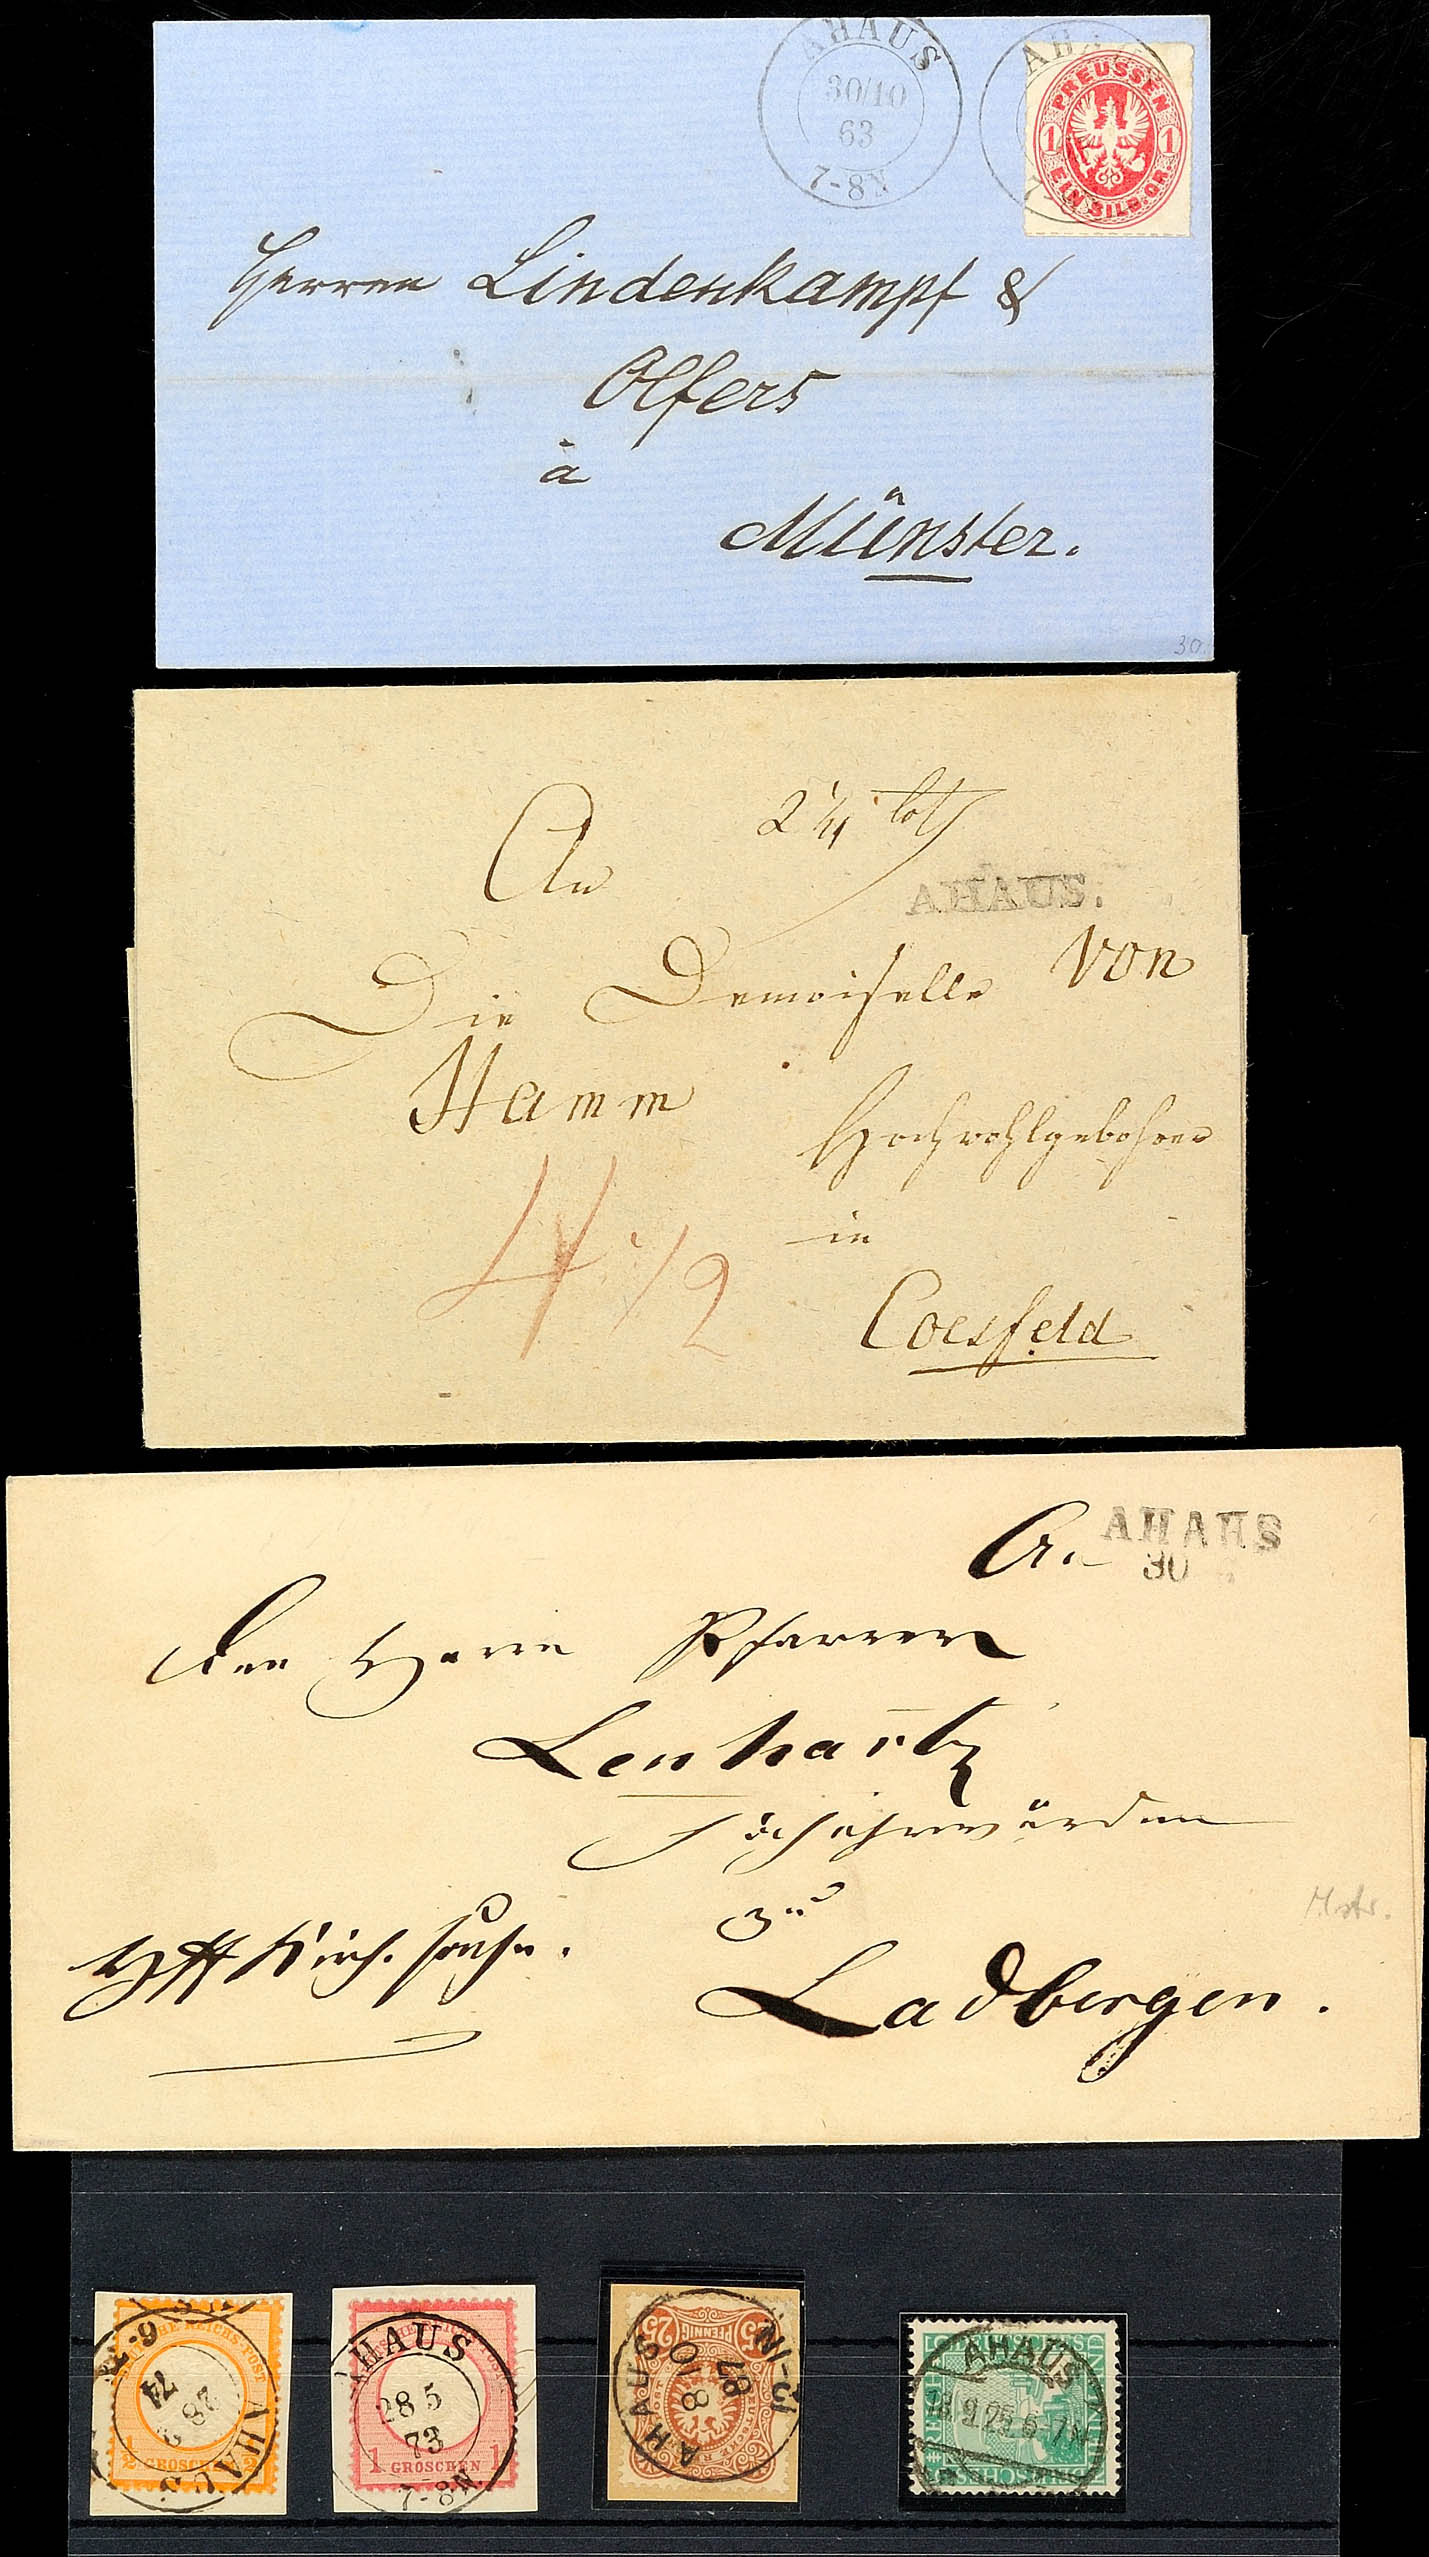 AHAUS
30/10
63
7-8N
AHA
PREUSSEN
1 1
EIN SILB.GR.
Herren Lindenkampf &
Olfers
à
Münster.
30
An
2 1/4 loth
AHAUS.
Die Demoiselle von
Hamm
Hochwohlgebohren
4 1/2
in
Coesfeld
An
AHAUS
30
den Herrn Pfarrer
Lenhartz
Hochehrwürden
zu
Mstr.
Ladbergen.
AHAUS
28
74
6-7
1/2 GROSCHEN
AHAUS
28 5
73
7-8N.
1 GROSCHEN 1
AHAUS
8 10
87
12-1N
25 PFENNIG 25
AHAUS
18.9.25.6-7N